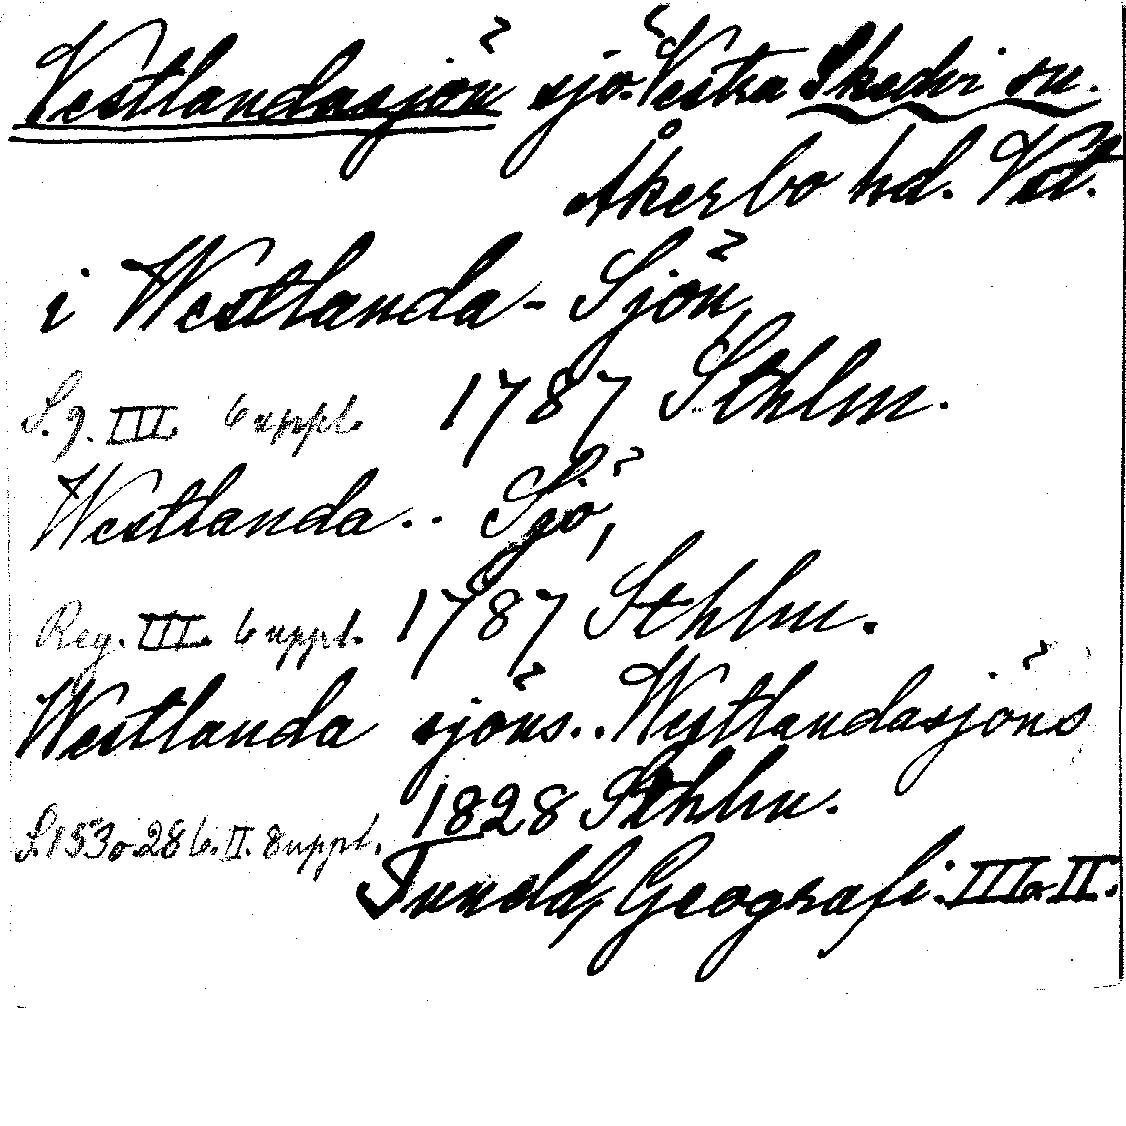 Vestlandasjön sjö Vestra Skedvi sn.
Åkerbo hd. Vstl.
i Westlanda-Sjön,
S. 9. III. 6 uppl. 1787 Sthlm.
Westlanda.. Sjö,
Reg. III. 6 uppl. 1787 Sthlm.
Westlanda sjöns.. Westlandasjöns
S. 153 o. 286. II. 8 uppl. 1828 Sthlm.
Tuneld, Geografi. III o. II.